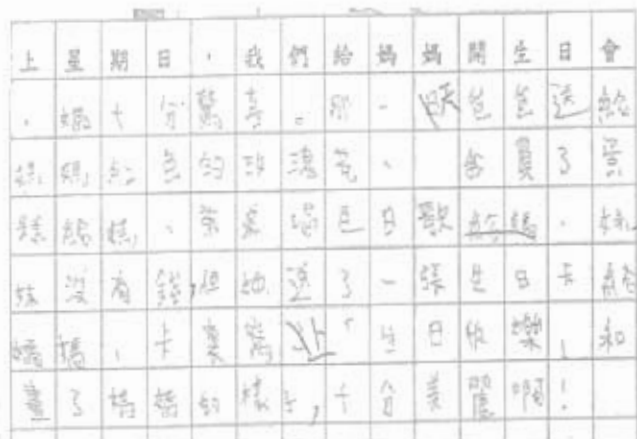 上星期日，我們給媽媽開生日會
，媽十分驚喜。那一天爸爸送給
媽媽紅色的玫瑰花、買了蛋
糕給媽，弟弟唱生日歌給媽，妹
妹沒有錢,但她送了一張生日卡給
媽媽，卡裏寫上「生日快樂」和
畫了媽媽的樣子,十分美麗啊！